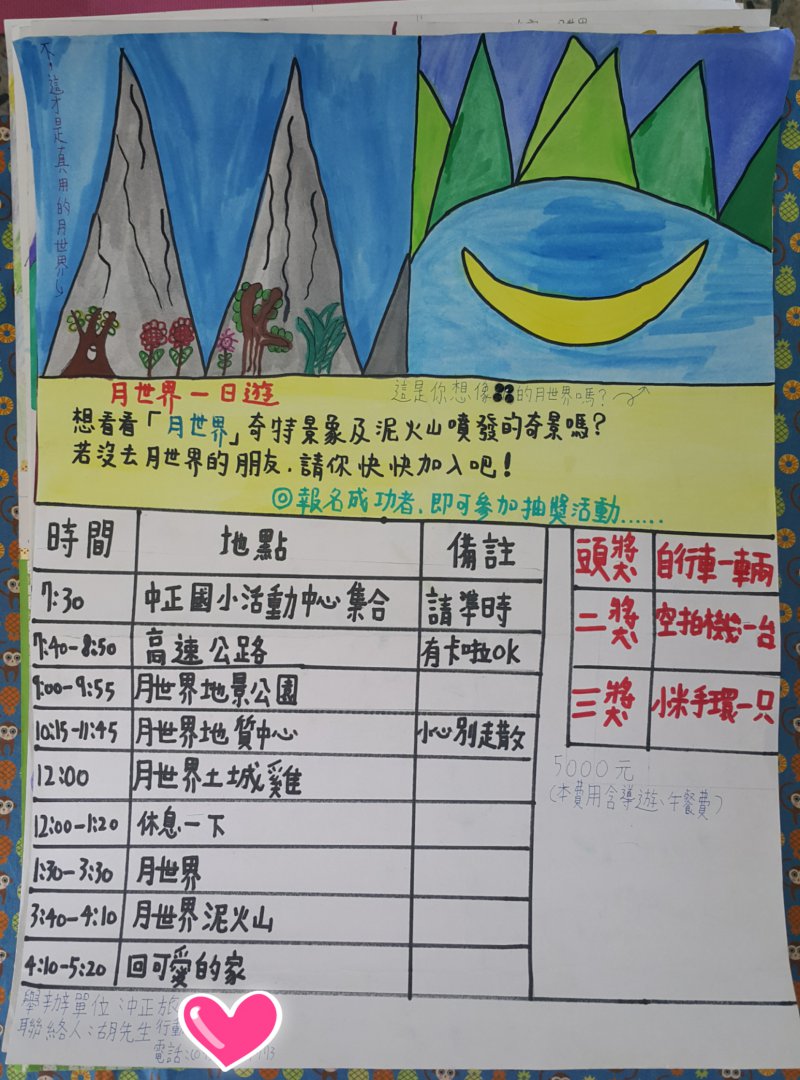 不,這才是真用的月世界
這是你想像的月世界嗎?
月世界一日遊
想看看「月世界」奇特景象及泥火山噴發的奇景嗎?
若沒去月世界的朋友,請你快快加入吧!
◎報名成功者,即可參加抽獎活動……
時間 地點 備註
7:30 中正國小活動中心集合 請準時
7:40-8:50 高速公路 有卡啦OK
9:00-9:55 月世界地景公園
10:15-11:45 月世界地質中心 小心別走散
12:00 月世界土土城雞
12:00-1:20 休息一下
1:30-3:30 月世界
3:40-4:10 月世界泥火山
4:10-5:20 回可愛的家
頭獎 自行車一輛
二獎 空拍機一台
三獎 小米手環一只
5000元
(本費用含導遊、午餐費)
舉辦單位:中正旅
聯絡人:胡先生 行動
電話: